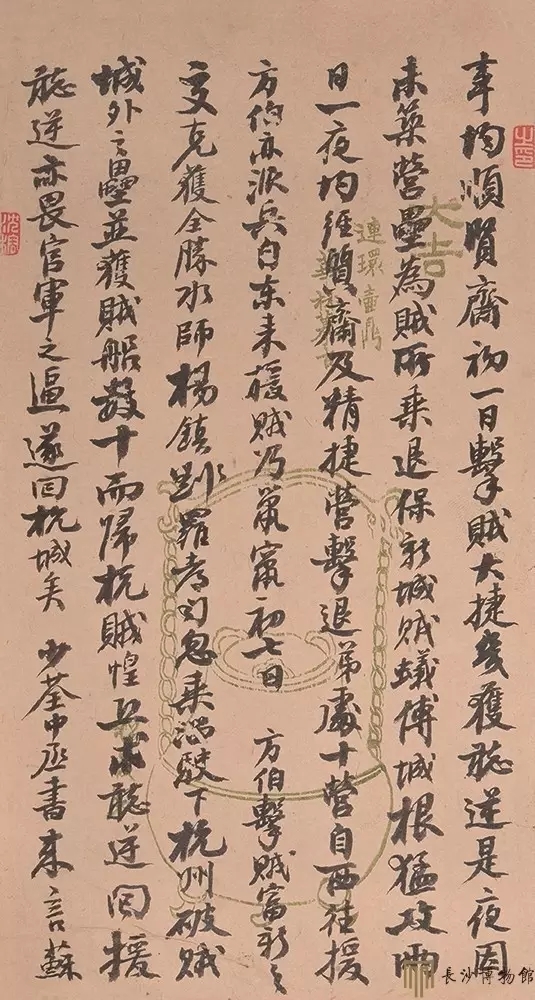 事均順質齋初一日擊賊大捷幾獲聽逆是夜因
未築營壘為賊所乘退保新城賊蟻傅城根猛攻兩
日一夜均經質齋及精捷營擊退弟處十營自西往援
方伯亦派兵自东来援賊乃鼠竄初七日 方伯擊賊富新之
交克獲全勝水師楊鎮劉羅忽乘潮駛下杭州破賊
城外之壘並獲賊船數十而歸杭賊惶恐求聽逆回援
聽逆亦畏官軍之逼遂回杭城矣 少荃中丞書来言蘇
大吉
連環壺
之印
長沙博物館